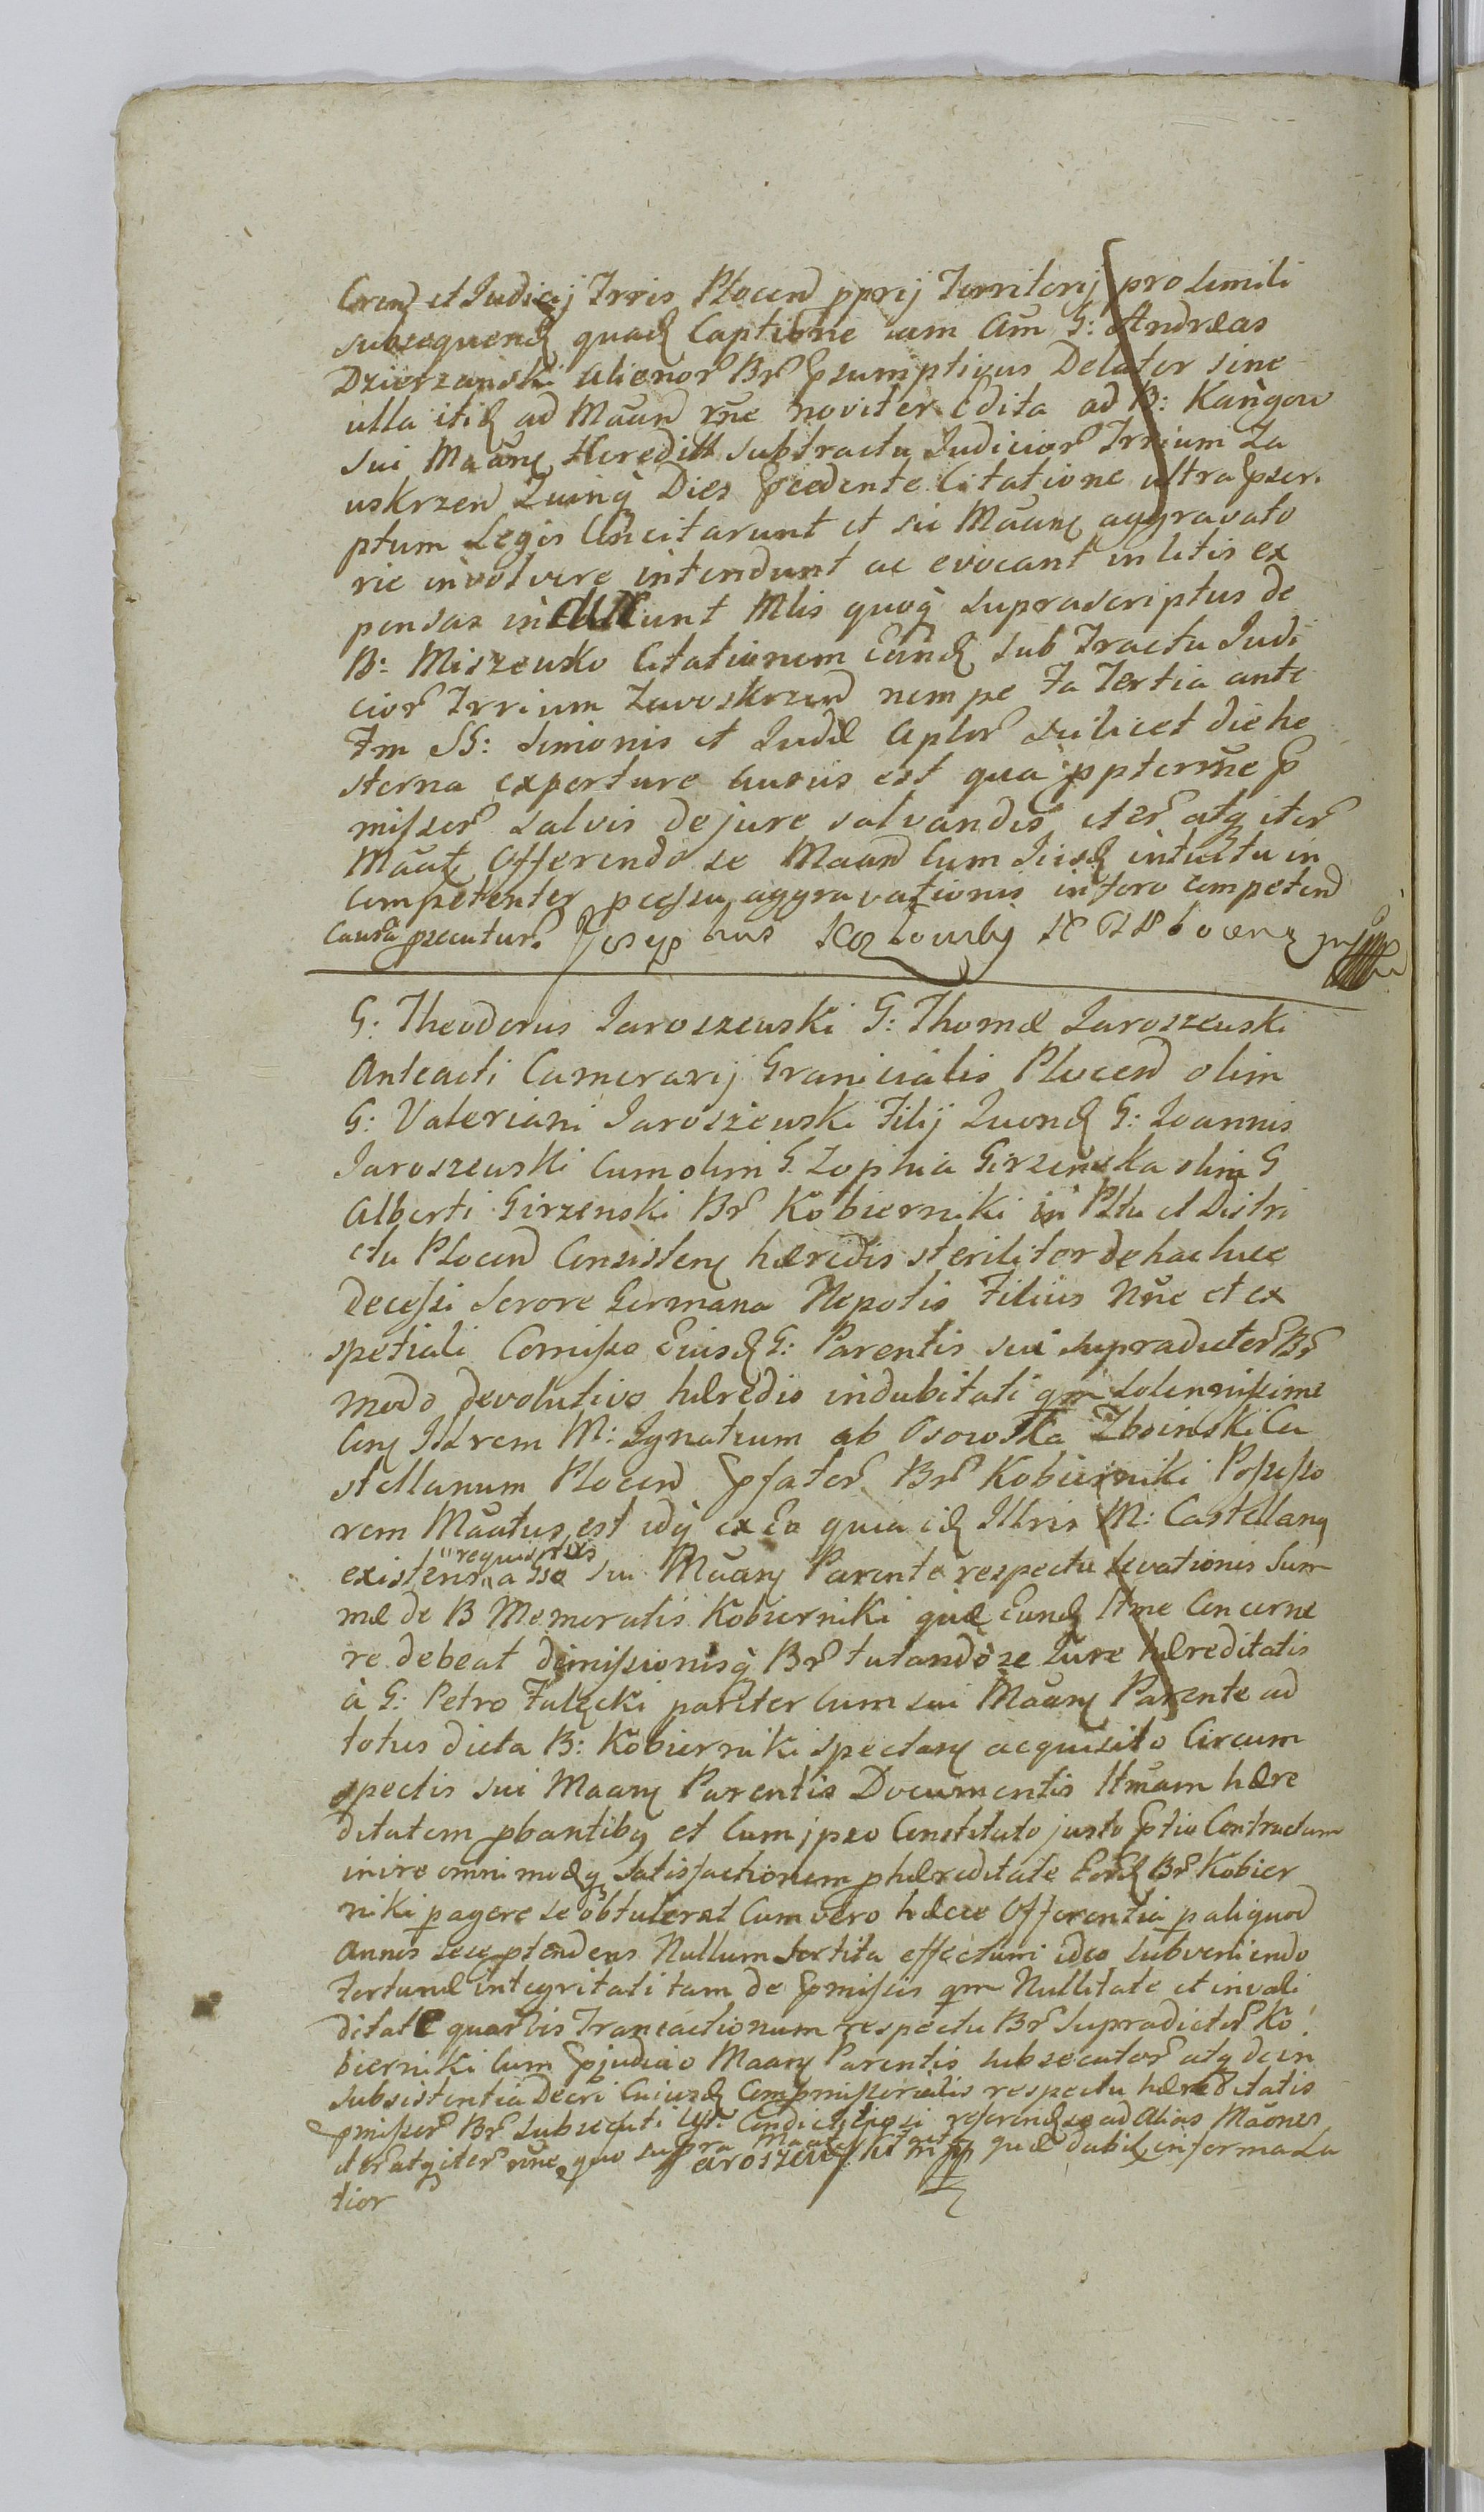 Coren et Judicij Trris Plocen pprij Territorij pro simili
subsequen quad Captione cum Am G: Andreas
Dzierzanski alienor Br Psumptivus Delator sine
ulla itid ad Maan rne noviter edita ad B: Kangow
sui Maane Heredit subtractu Judicior Trrium Za
uskrzen Quinq Dies Pcedente Citatione ultra Pscri
ptum Legis Concitarunt et sic Maane aggravato
rie involvere intendunt ac evocant in litis ex
pensas inducunt Mlis quoq supra scriptus de
B: Miszewko Citationem Eand sub Tractu Judi
cior Trrium Zawoskrzen nempe Fa Tertia ante
Fm SS: Simonis et Judæ Aplor scilicet die he
sterna experture ausus est qua ppterrne P
missor salvis de jure salvandis iter atq iter
Maat Offerendo se Maan Cum Iisd intuitu in
competenter pcessu aggravationis in foro competen
Caura psecutur. Josephus
G: Theodorus Jaroszewski G: Thomæ Jaroszewski
Anteacti Camerarij Granicialis Plocen olim
G: Valeriani Jaroszewski Filij Quond G: Joannis
Jaroszewski Cum olim G. Zophia Girzenska olim G
Alberti Girzenski Br Kobierniki in Pltu et Distri
ctu Plocen Consisten hæredis steriliter de hac luce
decessi Sorore Germana Nepotis Filius Nne et ex
spetiali Comisso Eiusd G: Parentis sui supradictor Br
modo devolutivo hæredis indubitati qm solennissime
Con Illrem M: Ignatium ab Osowka Zboinski Ca
stellanum Plocen Pfator Br Kobierniki Possesso
rem Maatus est idq ex Eo quia id Illris M: Castellanq
existens "requisitus" a Gso sui Maan Parente respectu levationis Sum
mæ de B Memoratis Kobierniki quæ Eund Itme Concerne
re debeat dimissionisq Br tutando se Jure hæreditatis
à G: Petro Falęcki pariter Cum sui Maan Parente ad
totus dicta B: Kobierniki spectan acquisito Circum
spectis sui Maan Parentis Documentis Itmam hære
ditatem pbantibq et Cum ipso Constituto justo Ptio Contractum
inire omnimodq satisfactionem p hæreditate Eord Br Kobier
niki pagere se obtulerat Cum vero hæcce Offerentia p aliquod
Annos sese ptendens Nullum sortita effectum ideo subveniendo
Fortunæ integritati tam de Pmissis qm Nullitate et invali
ditate quarvis Transactionum respectu Br Supradictor Ko
bierniki Cum Pjudicio Maan Parentis subsecutor atq de in
subsistentia Decri Cuiusd Compmissorialis respectu hæreditatis
Pmissor Br subsecuti referend se ad Alias Maones
iter atq iter rne quo supra Maat quæ dabit in forma La
Jaroszewski mpp
tior